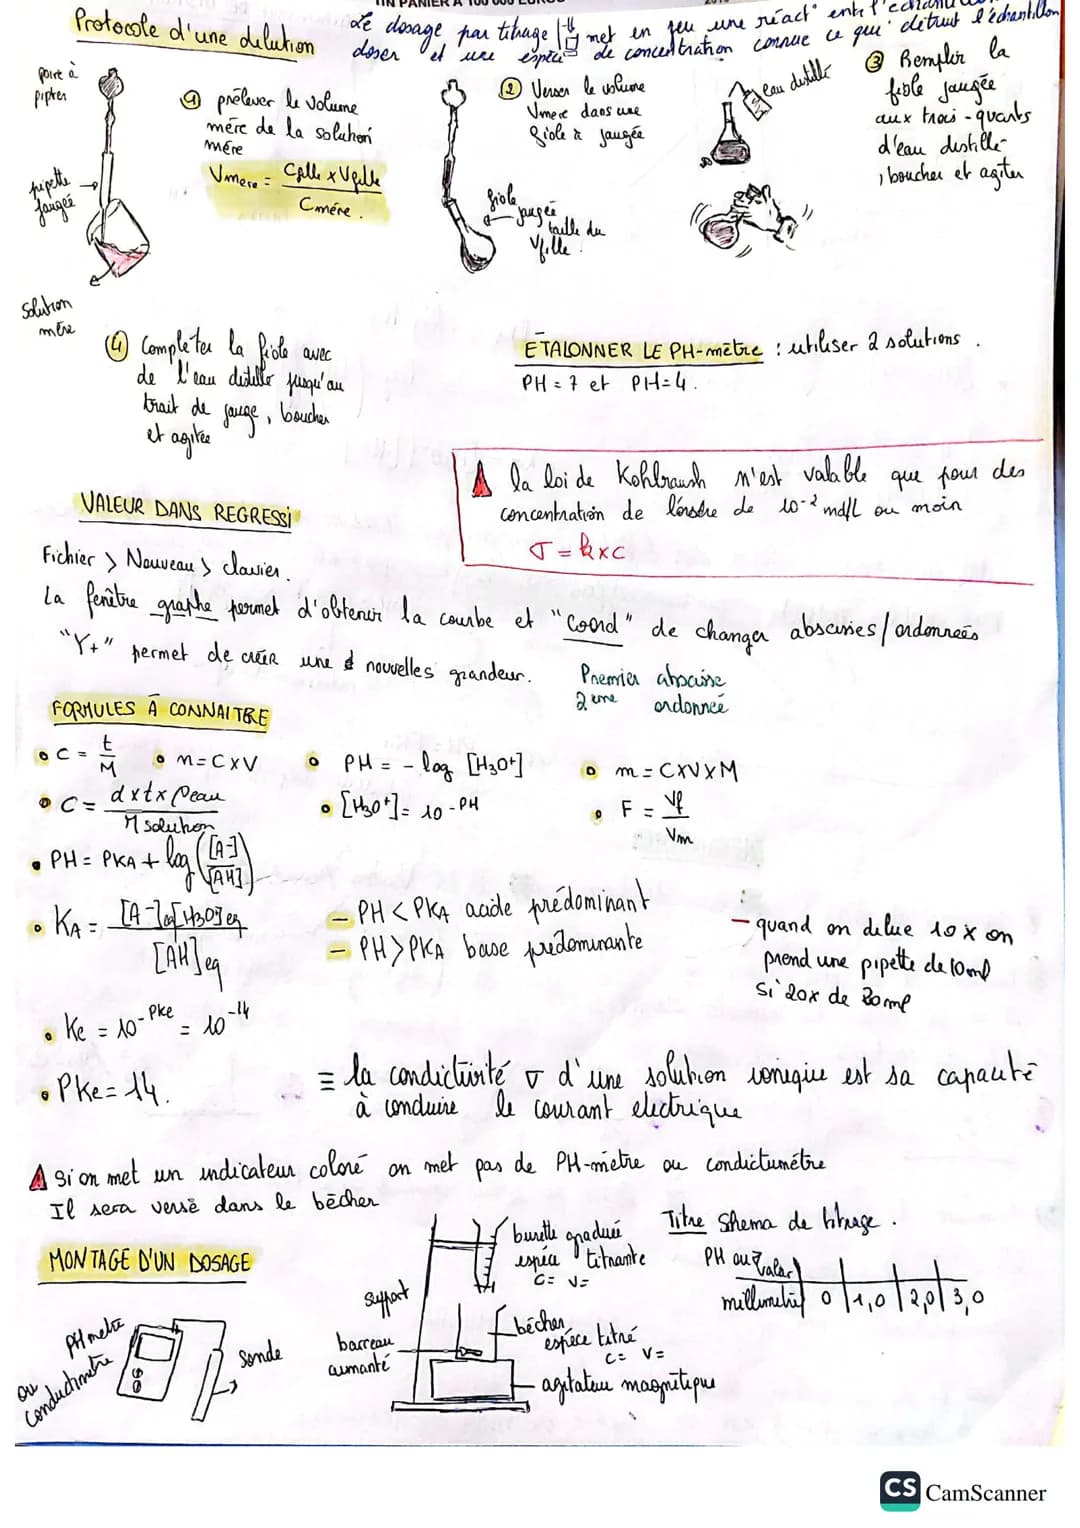 Protocole d'une dilution
Le dosage par titrage met en jeu une réact° entre l'
doser et une espèce de concentration connue ce qui détruit l'échantillon
poire à
pipter
pipette
jaugée
solution
mère
① prélever le volume
mère de la solution
mère
Vmere = Cfille x Vfille
Cmére.
② Verser le volume
Vmere dans une
fiole à jaugée
fiole
jaugée
taille du
Vfille.
eau distillé
③ Remplir la
fiole jaugée
aux trois-quarts
d'eau distillé
, boucher et agiter
④ Compléter la fiole avec
de l'eau distillé jusqu'au
trait de jauge, boucher
et agitée
ETALONNER LE PH-mètre : utiliser 2 solutions.
PH = 7 et PH=4.
la loi de Kohlraush n'est valable que pour des
concentration de l'ordre de 10-² mol/L ou moin
σ = k x c
VALEUR DANS REGRESSI
Fichier > Nouveau > clavier.
La fenêtre graphe permet d'obtenir la courbe et "Coord" de changer abscisses/ordonneés
"Y+" permet de créer une nouvelles grandeur.
Premier abscisse
2eme ordonnée
FORMULES À CONNAITRE
• C = t/M
• n = C x V
• PH = - log [H₃O⁺]
• m = C x V x M
• C = d x t x ρeau / M solution
• [H₃O⁺] = 10⁻ᴾᴴ
• F = Vf/Vm
• PH = PKA + log ([A-]/[AH])
• KA = [A-]eq[H₃O]eq / [AH]eq
- PH < PKA acide prédominant
- PH > PKA base prédominante
- quand on dilue 10 x on
prend une pipette de 10ml
si 20x de 20ml
• Ke = 10-PKe = 10-14
• PKe = 14.
= la condictivité σ d'une solution ionique est sa capacité
à conduire le courant electrique
Si on met un indicateur coloré on met pas de PH-mètre ou condictumétre
Il sera versé dans le bécher
MONTAGE D'UN DOSAGE
PH metre
ou
conductimetre
Sonde
support
barreau
aimanté
burette gradué
espèce titrante
C= V=
bécher
espèce titré
C= V=
agitateur magnétique
Titre Shema de titrage.
PH ou
0 | 1,0 | 2,0 | 3,0
CS CamScanner